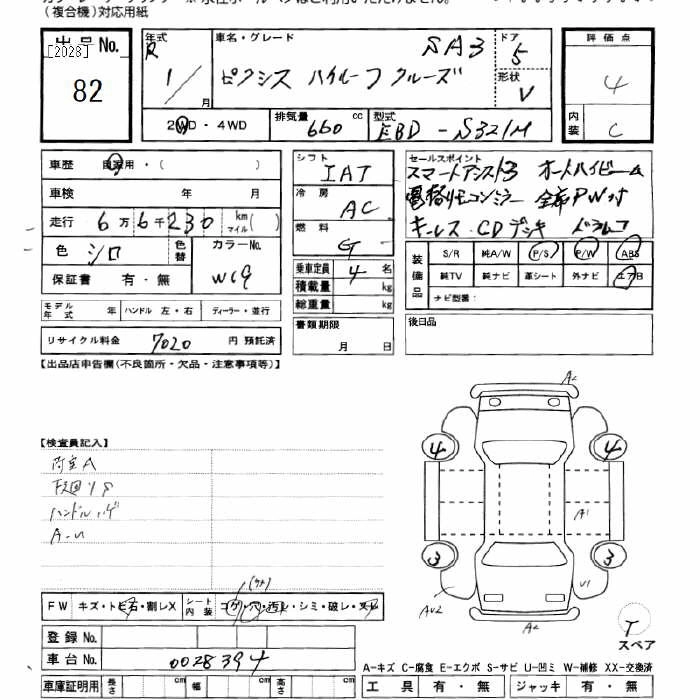 (複合機)対応用紙
出品No.
[2028]
82
年式
R
1/
月
車名・グレード
SA3
ピクシス ハイルーフ クルーズ
ドア
5
形状
V
評価点
4
内装
C
2WD・4WD
排気量
660
cc
型式
EBD-S321M
車歴
自家用・( )
車検
年 月
走行
6万6千230
km
マイル( )
色
シロ
色替
カラーNo.
W19
保証書
有・無
モデル年式
年
ハンドル 左・右
ディーラー・並行
リサイクル料金
7020
円 預託済
シフト
IAT
冷房
AC
燃料
G
乗車定員
4
名
積載量
kg
総重量
kg
書類期限
月 日
セールスポイント
スマートアシスト3 オートハイビーム
電格リモコンミラー 全席PW付
キーレス CDデッキ ドラレコ
装備品
S/R
純A/W
P/S
P/W
ABS
純TV
純ナビ
革シート
外ナビ
エアB
ナビ型番:
後日品
【出品店申告欄(不良箇所・欠品・注意事項等)】
【検査員記入】
内室A
下廻りS
ハンドルハゲ
A・U
A2
4
4
A1
3
3
AU2
U1
A2
T
スペア
FW
キズ・トビ石・割レX
シート内装
コゲ・穴・汚レ・シミ・破レ・スレ
登録No.
車台No.
0028394
車庫証明用
長さ
cm
幅
cm
高さ
cm
A-キズ C-腐食 E-エクボ S-サビ U-凹ミ W-補修 XX-交換済
工具
有・無
ジャッキ
有・無